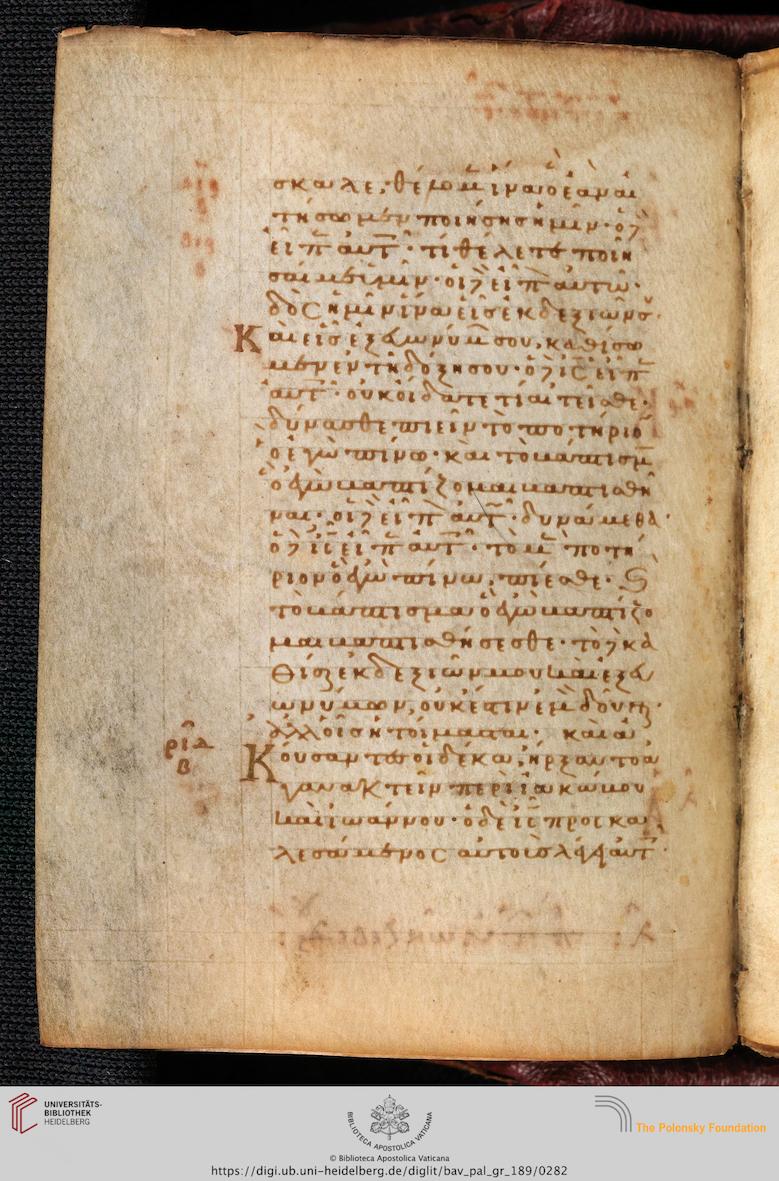 σκαλε, θέλομεν ἵνα ὃ ἐὰν αἰ
τησωμεν ποιησης ημιν· ὁ δὲ
εἶπ αὐτ· τι θελετε ποιη
σαι με ὑμιν· οἱ δὲ εἶπ αὐτω·
δὸς ημῖν ἵνα εἷς ἐκ δεξιῶν σ
Καὶ εἷς ἐξ εὐωνύμ σου, καθίσω
μεν ἐν τῆ δόξη σου· ὁ δὲ ις εἶπ
αὐτ· οὐκ οἴδατε τί αἰτεῖσθε·
δύνασθε πιεῖν τὸ ποτήριο
ὃ ἐγὼ πίνω· καὶ τὸ βάπτισμ
ὃ ἐγὼ βαπτίζομαι βαπτισθῆ
ναι· οἱ δὲ εἶπ αὐτ· δυνάμεθα·
ὁ δὲ ις εἶπ αὐτ· τὸ μ ποτή
ριον ὃ ἐγὼ πίνω, πίεσθε· καὶ
τὸ βάπτισμα ὃ ἐγὼ βαπτίζο
μαι βαπτισθήσεσθε· τὸ δὲ κα
θίσαι ἐκ δεξιῶν μου καὶ ἐξ εὐ
ωνύμων, οὐκ ἔστιν ἐμ δοῦναι·
ἀλλ οἷς ητοίμασται· καὶ ἀ
ριδ
β
Κούσαντες οἱ δέκα, ἤρξαντο ἀ
γανακτεῖν περὶ ἰακώβου
καὶ ἰωάννου· ὁ δὲ ις προσκα
λεσάμενος αὐτοὺς λέγει αὐτ·
UNIVERSITÄTS-
BIBLIOTHEK
HEIDELBERG
BIBLIOTECA APOSTOLICA VATICANA
The Polonsky Foundation
© Biblioteca Apostolica Vaticana
https://digi.ub.uni-heidelberg.de/diglit/bav_pal_gr_189/0282